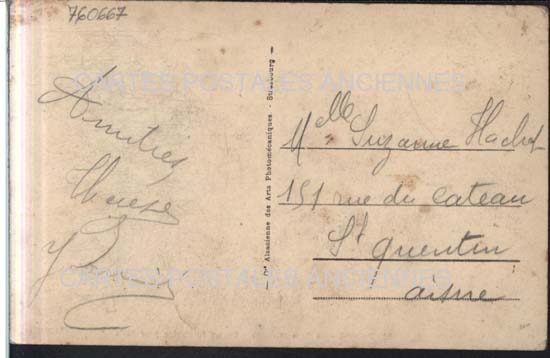 760667
CARTES POSTALES ANCIENNES
Amitiés
Thérèse
Cie Alsacienne des Arts Photomécaniques - Strasbourg
Melle Suzanne Hachet
151 rue du Cateau
St Quentin
aisne
CARTES POSTALES ANCIENNES